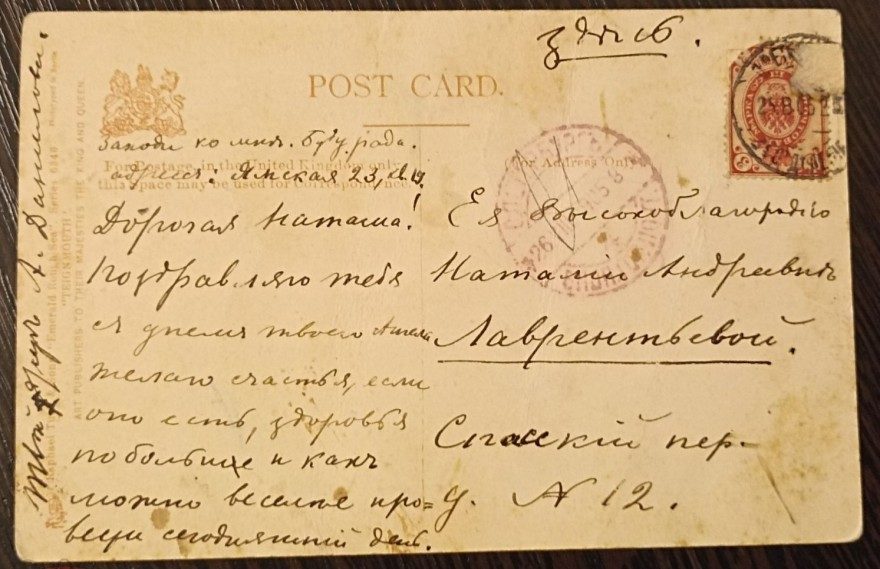 здѣсь.
POST CARD.
Заходи ко мнѣ. Буду рада.
For Postage in the United Kingdom only,
this Space may be used for Correspondence.
адресъ: Ямская 23, кв. 19.
For Address Only.
Дорогая Наташа!
Поздравляю тебя
съ днемъ твоего Ангела
желаю счастья, если
оно есть, здоровья
побольше и какъ
можно веселѣе про=
вести сегодняшній день.
Твой другъ А. Данилова.
Ея Высокоблагородію
Наталіи Андреевнѣ
Лаврентьевой.
Спасскій пер.
д. N 12.
ART PUBLISHERS TO THEIR MAJESTIES THE KING AND QUEEN.
"TEIGNMOUTH"